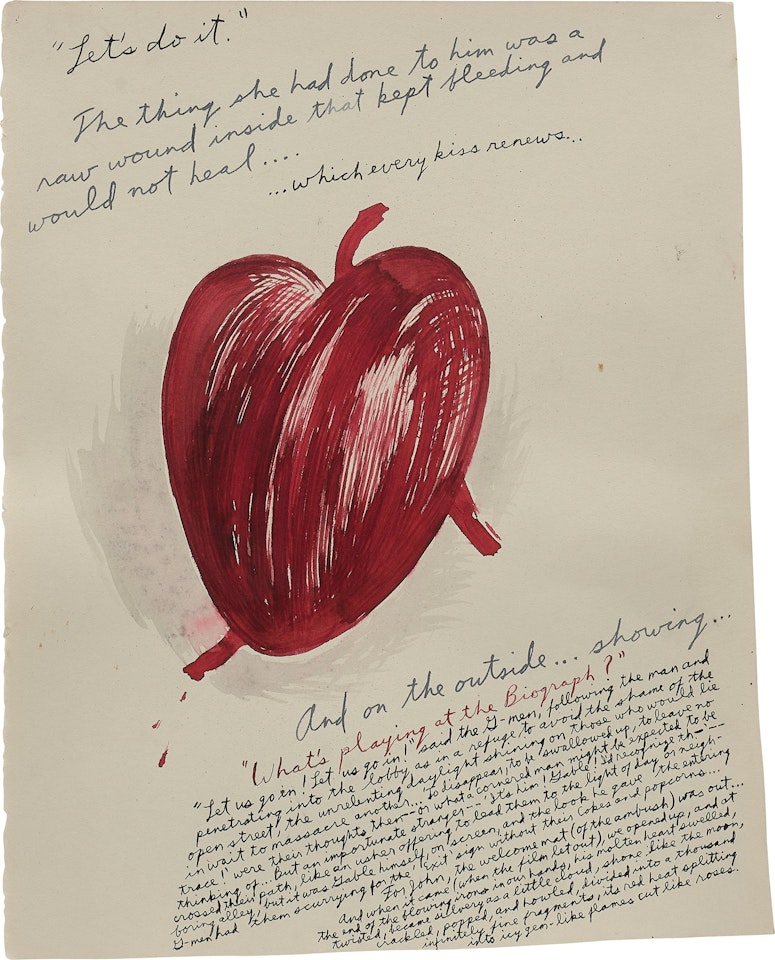 "Let's do it."
The thing she had done to him was a
raw wound inside that kept bleeding and
would not heal....
...which every kiss renews...
And on the outside... showing...
"What's playing at the Biograph?"
"Let us go in! Let us go in!" said the G-men, following the man and
penetrating into the lobby as in a refuge to avoid the shame of the
open street, the unrelenting daylight shining on those who would lie
in wait to massacre another... To disappear, to be swallowed up, to leave no
trace, were their thoughts then--or what a cornered man might be expected to be
thinking of. But an importunate stranger--'It's him! Gable! I'd recognize th--'--
crossed their path, like an usher offering to lead them to the light of day or neigh-
boring alley, but it was Gable himself, on screen, and the look he gave the entering
G-men had them scurrying for the 'Exit' sign without their Cokes and popcorns...
For John, the welcome mat (of the ambush) was out...
And when it came (when the film let out), we opened up, and at
the end of the blowing irons in our hands, his molten heart swelled,
twisted, became silvery as a little cloud, shone like the moon,
crackled, popped, and howled, divided into a thousand
infinitely fine fragments, its red heat splitting
into icy gem-like flames cut like roses.